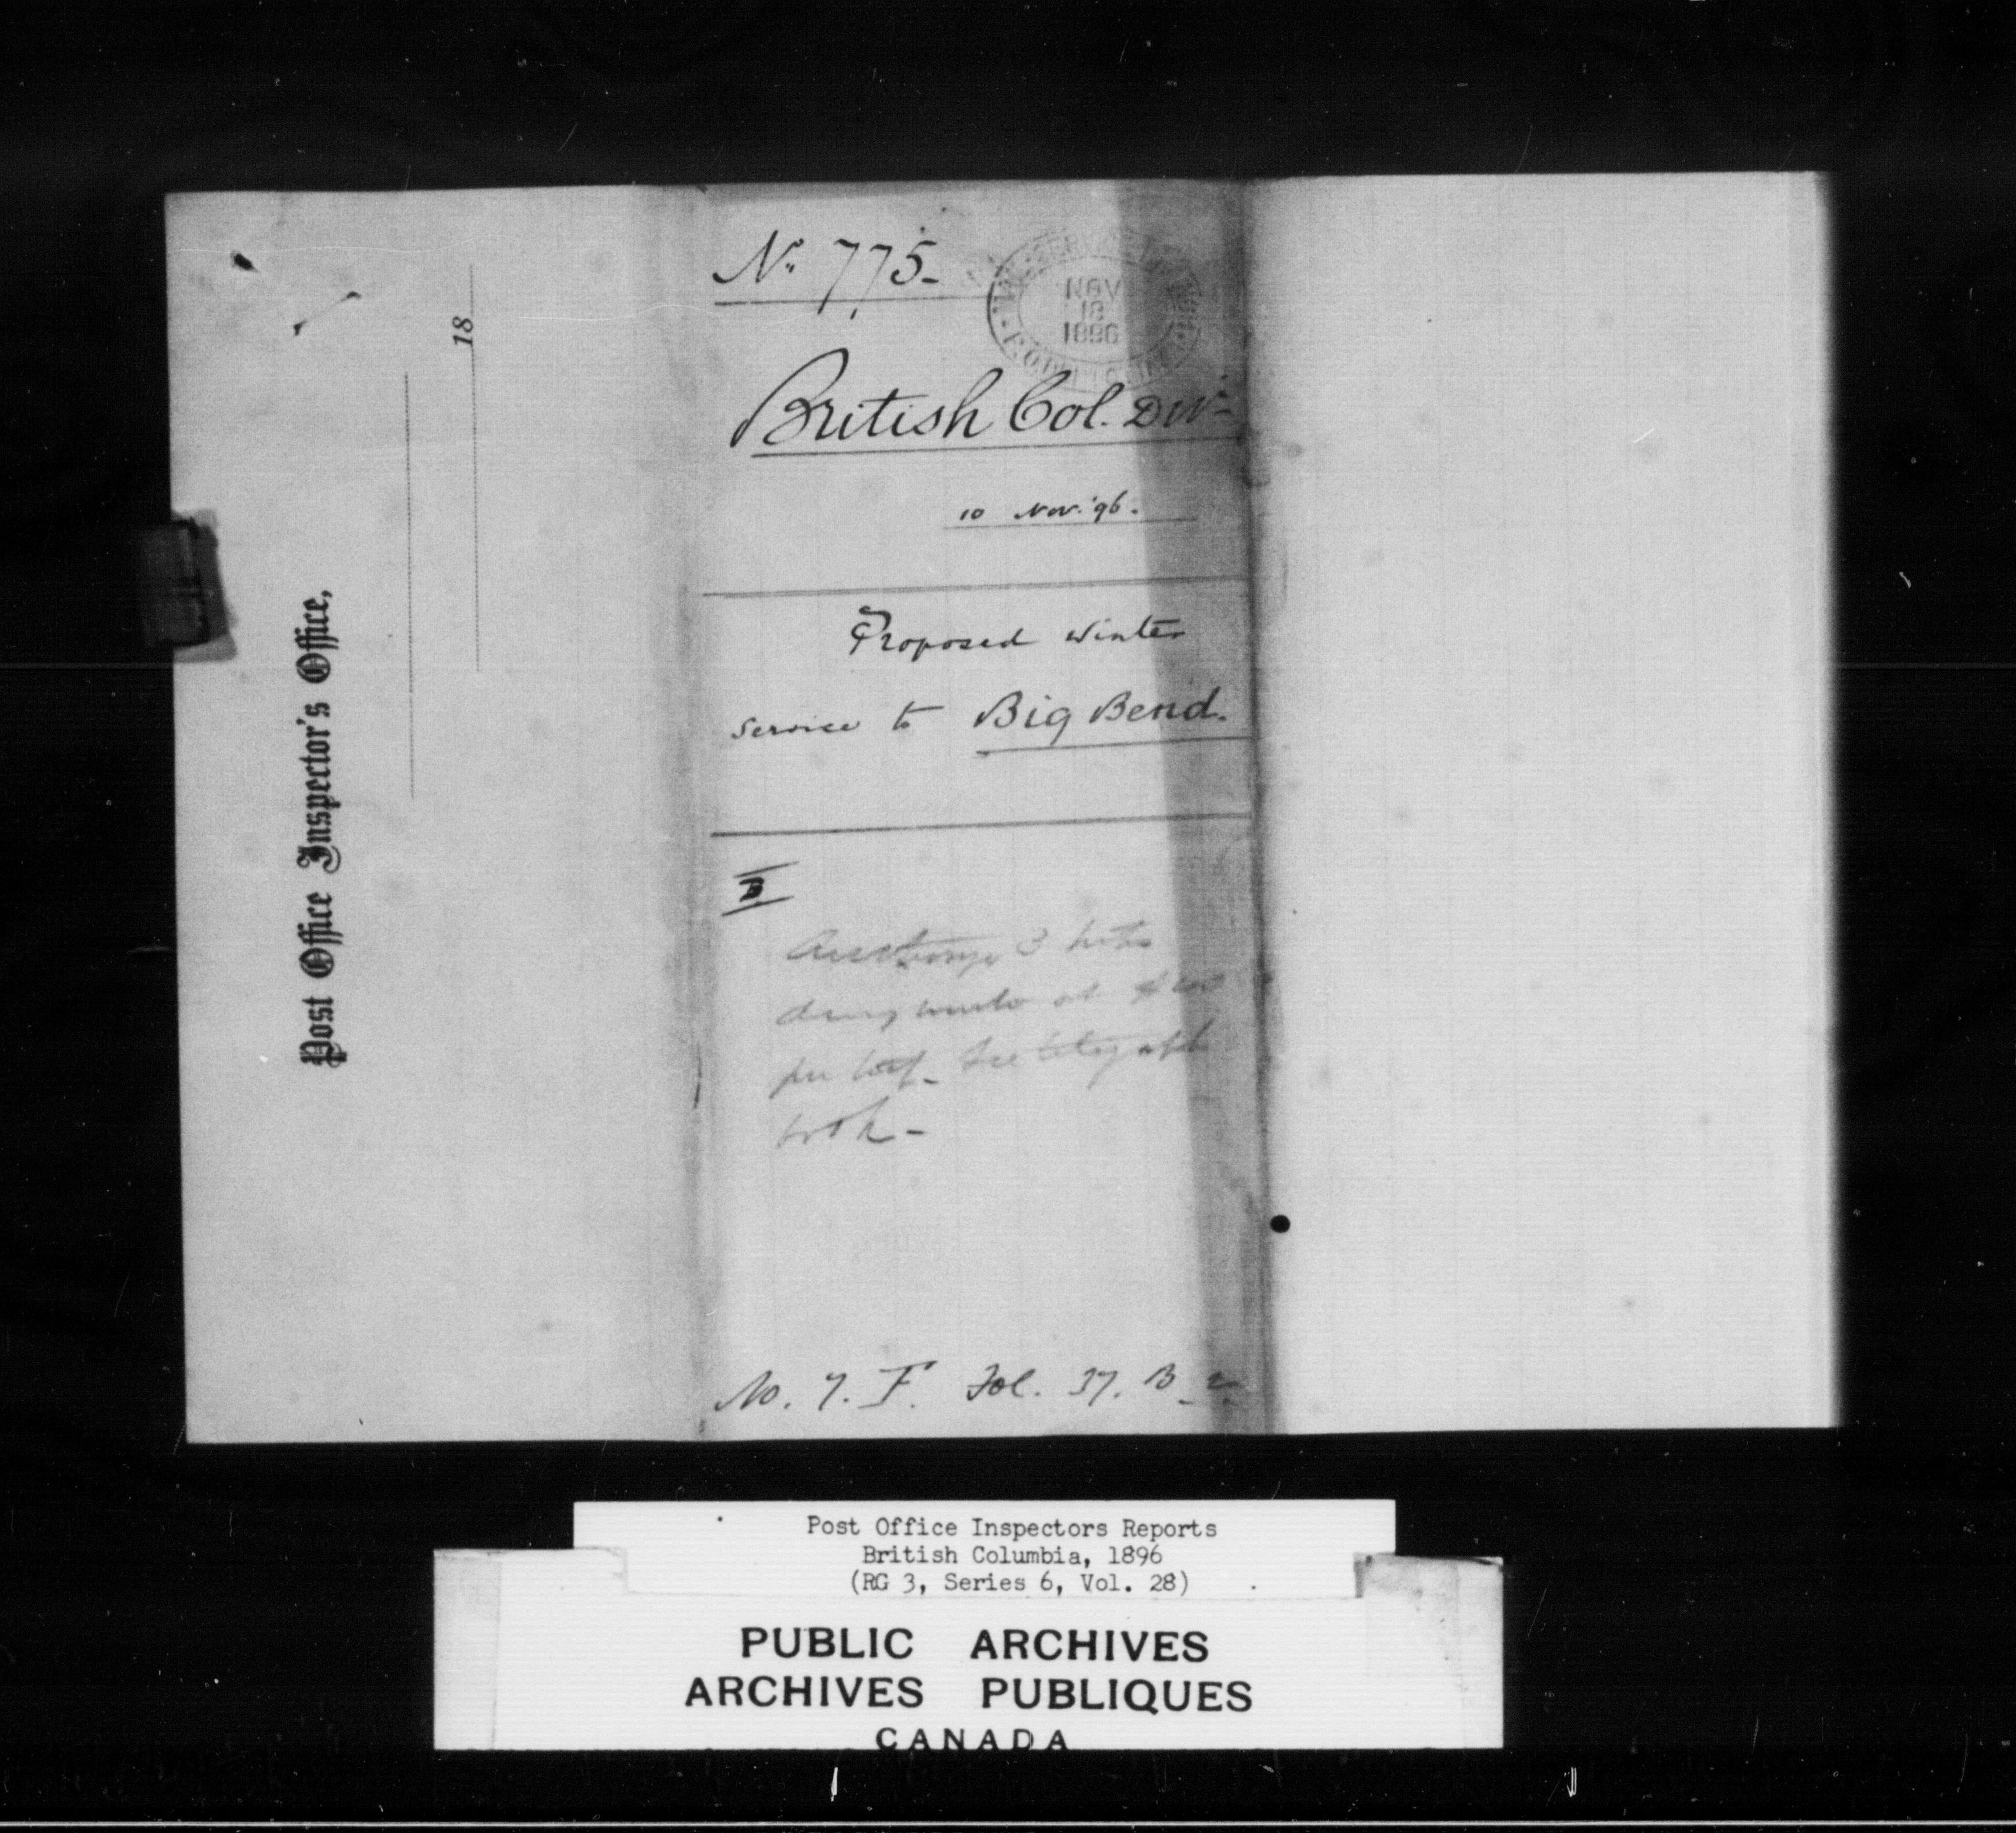 Post Office Inspector's Office,
18
No. 775-
NOV
18
1896
British Col. Divn
10 Nov. '96.
Proposed winter
service to Big Bend.
3
at
per See telegraph
No. 7. F. Fol. 37. B 2
Post Office Inspectors Reports
British Columbia, 1896
(RG 3, Series 6, Vol. 28)
PUBLIC ARCHIVES
ARCHIVES PUBLIQUES
CANADA